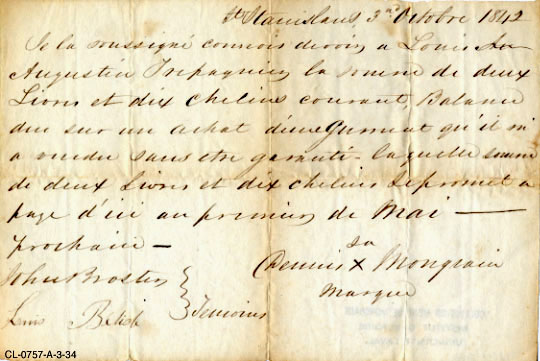 St Stanislaus 3 Octobre 1842
Je la soussigné connois devoir a Louis
Augustin Trepagnier la somme de deux
Livres et dix chelins courant, Balance
due sur un achat d'une Jument qu'il m'
a vendu sans etre garanti - laquelle somme
de deux Livres et dix chelins Je promet a
payé d'ici au premier de Mai —
prochain —
sa
John Broster Dennis X Mongrain
Temoins marque
Louis
CL-0757-A-3-34